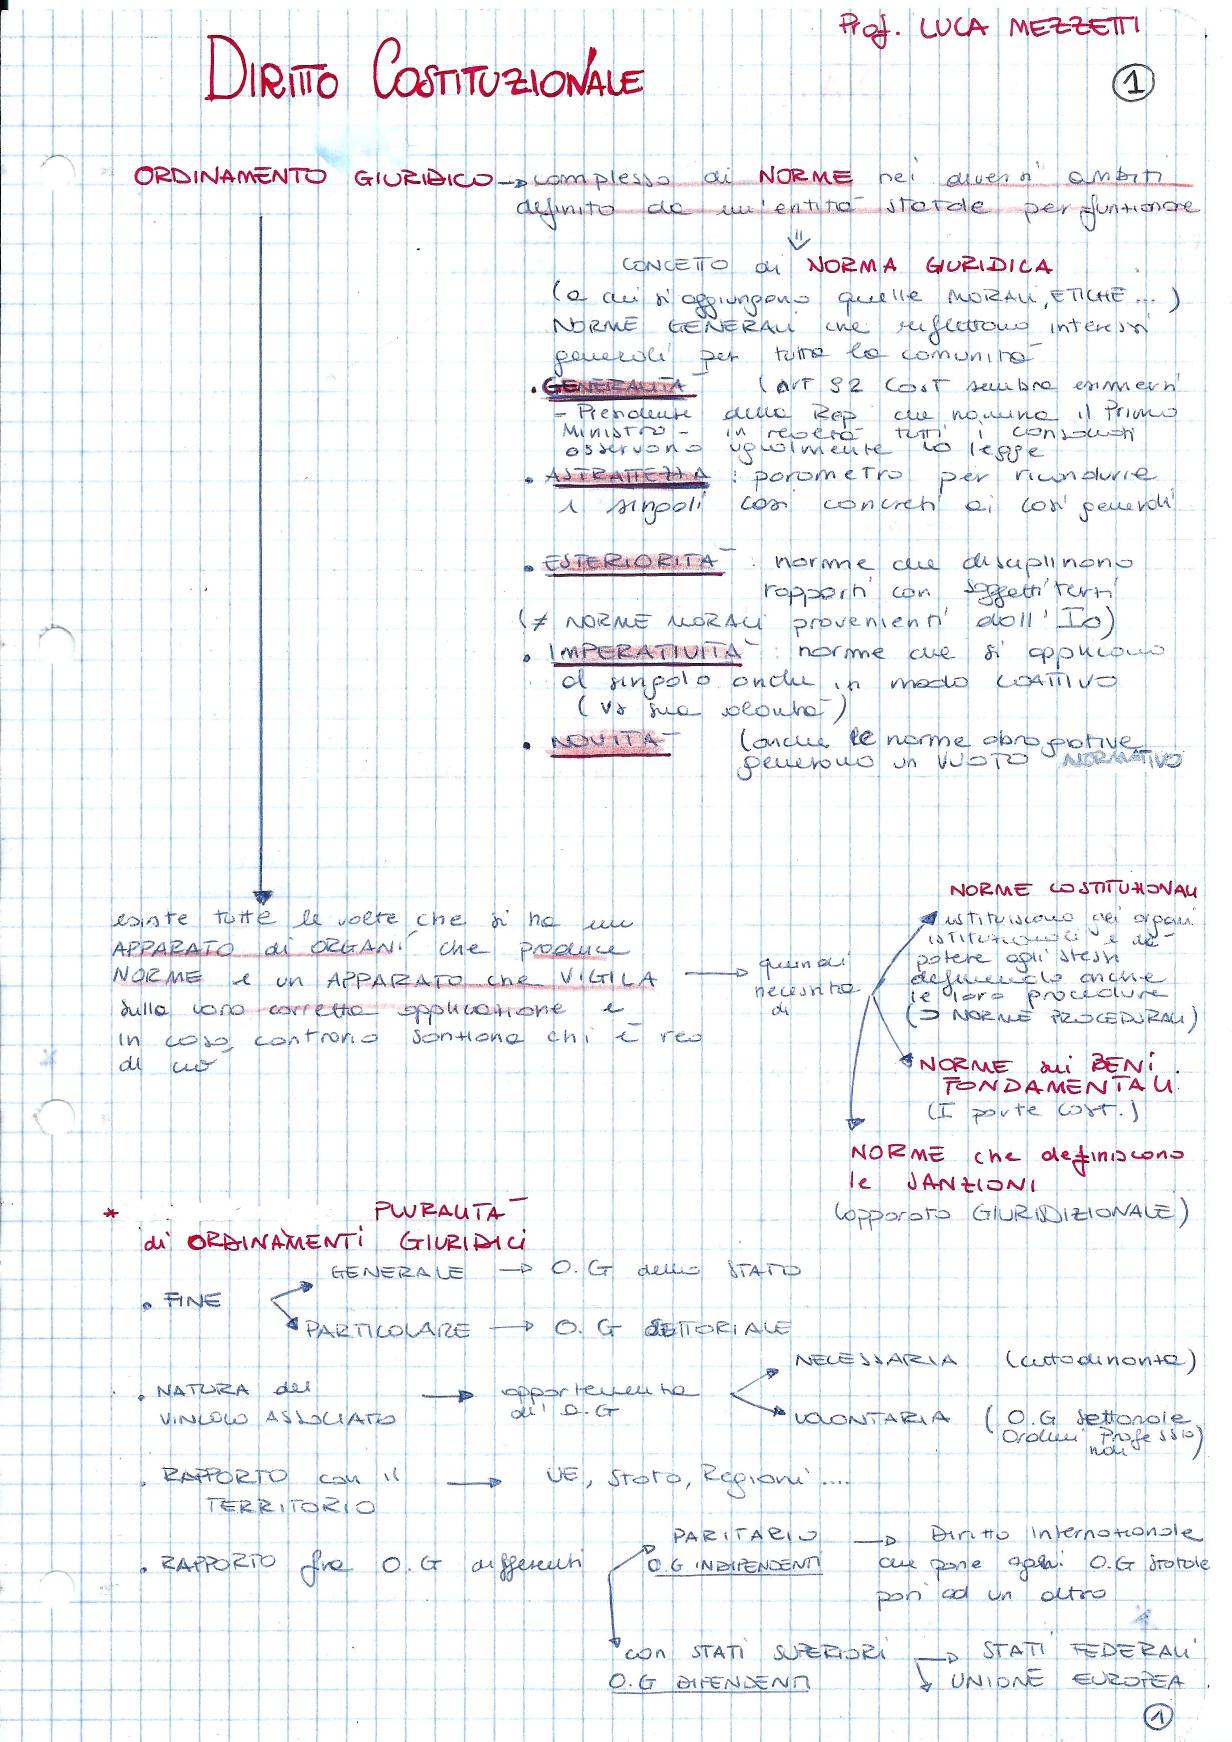 Prof. LUCA MEZZETTI
DIRITTO COSTITUZIONALE
1
ORDINAMENTO GIURIDICO → complesso di NORME nei diversi ambiti
definito da un'entità statale per funzionare
CONCETTO di NORMA GIURIDICA
(a cui si aggiungono quelle MORALI, ETICHE...)
NORME GENERALI che riflettono interessi
generali per tutta la comunità
• GENERALITÀ (art 92 COST sembra esimersi
- Presidente della Rep che nomina il Primo
Ministro - in realtà tutti i consociati
osservano ugualmente la legge
• ASTRATTEZZA : parametro per ricondurre
i singoli casi concreti ai casi generali
• ESTERIORITÀ : norme che disciplinano
rapporti con soggetti terzi
(≠ NORME MORALI provenienti dall'Io)
• IMPERATIVITÀ : norme che si applicano
al singolo anche in modo COATTIVO
(vs sua volontà)
• NOVITÀ (anche le norme abrogative
generano un VUOTO NORMATIVO
esiste tutte le volte che si ha un
APPARATO di ORGANI che produce
NORME e un APPARATO che VIGILA
sulla loro corretta applicazione e
in caso contrario sanziona chi è reo
di ciò
→ quindi
necessita
di
NORME COSTITUZIONALI
istituiscono gli organi
istituzionali e dà
potere agli stessi
definendo anche
le loro procedure
(⊃ NORME PROCEDURALI)
NORME sui BENI
FONDAMENTALI
(I parte cost.)
NORME che definiscono
le SANZIONI
(apparato GIURISDIZIONALE)
* PLURALITÀ
di ORDINAMENTI GIURIDICI
GENERALE → O.G dello STATO
• FINE
PARTICOLARE → O.G SETTORIALE
NECESSARIA (cittadinanza)
• NATURA del → appartenenza
VINCOLO ASSOCIATO di O.G
VOLONTARIA (O.G settoriale
Ordini Professio
nali)
• RAPPORTO con il → UE, Stato, Regioni ....
TERRITORIO
PARITARIO → Diritto Internazionale
• RAPPORTO fra O.G differenti O.G INDIPENDENTI che pone ogni O.G statale
pari ad un altro
con STATI SUPERIORI → STATI FEDERALI
O.G DIPENDENTI → UNIONE EUROPEA
1